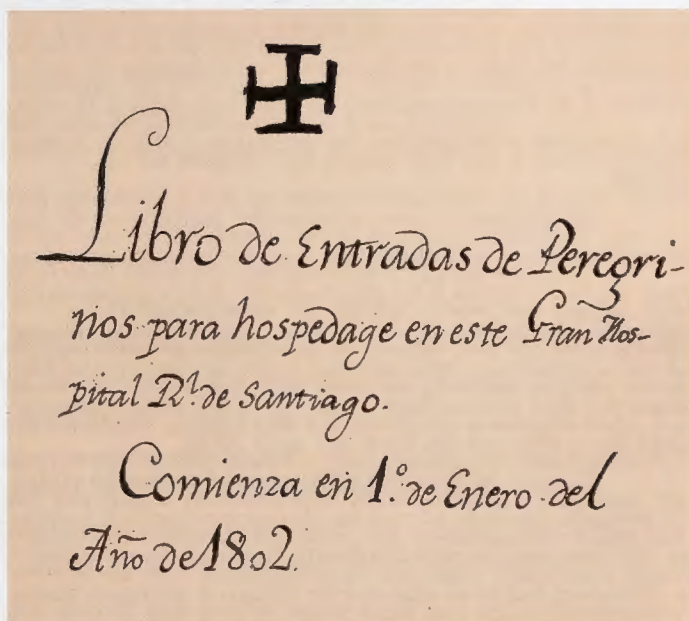 Libro de Entradas de Peregri-
nos para hospedage en este Gran Hos-
pital Rl. de Santiago.
Comienza en 1.º de Enero del
Año de 1802.